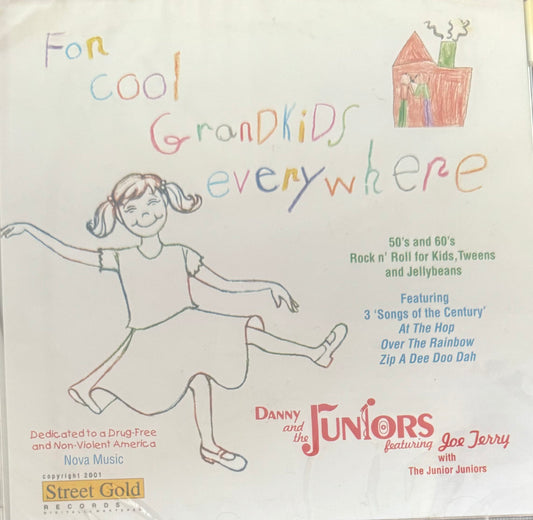 For
cool
GranDKiDS
everywhere
50's and 60's
Rock n' Roll for Kids, Tweens
and Jellybeans
Featuring
3 'Songs of the Century'
At The Hop
Over The Rainbow
Zip A Dee Doo Dah
DANNY and the JUNIORS
featuring Joe Terry
with
The Junior Juniors
Dedicated to a Drug-Free
and Non-Violent America
Nova Music
copyright 2001
Street Gold
RECORDS